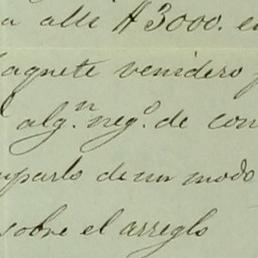 a alli $3000. en
aquete venidero
algⁿ. negº. de con
uparlo de un modo
sobre el arreglo